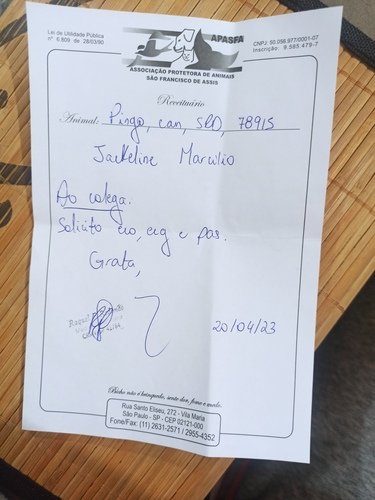 Lei de Utilidade Pública
nº 6.809 de 28/03/90
APASFA
CNPJ: 50.056.977/0001-07
Inscrição: 9.585.479-7
ASSOCIAÇÃO PROTETORA DE ANIMAIS
SÃO FRANCISCO DE ASSIS
Receituário
Animal: Pingo, can, SRD, 78915
Jackeline Marcilio
Ao colega.
Solicito eco, ecg e pas.
Grata,
20/04/23
Bicho não é brinquedo, sente dor, fome e medo.
Rua Santo Eliseu, 272 - Vila Maria
São Paulo - SP - CEP 02121-000
Fone/Fax: (11) 2631-2571 / 2955-4352